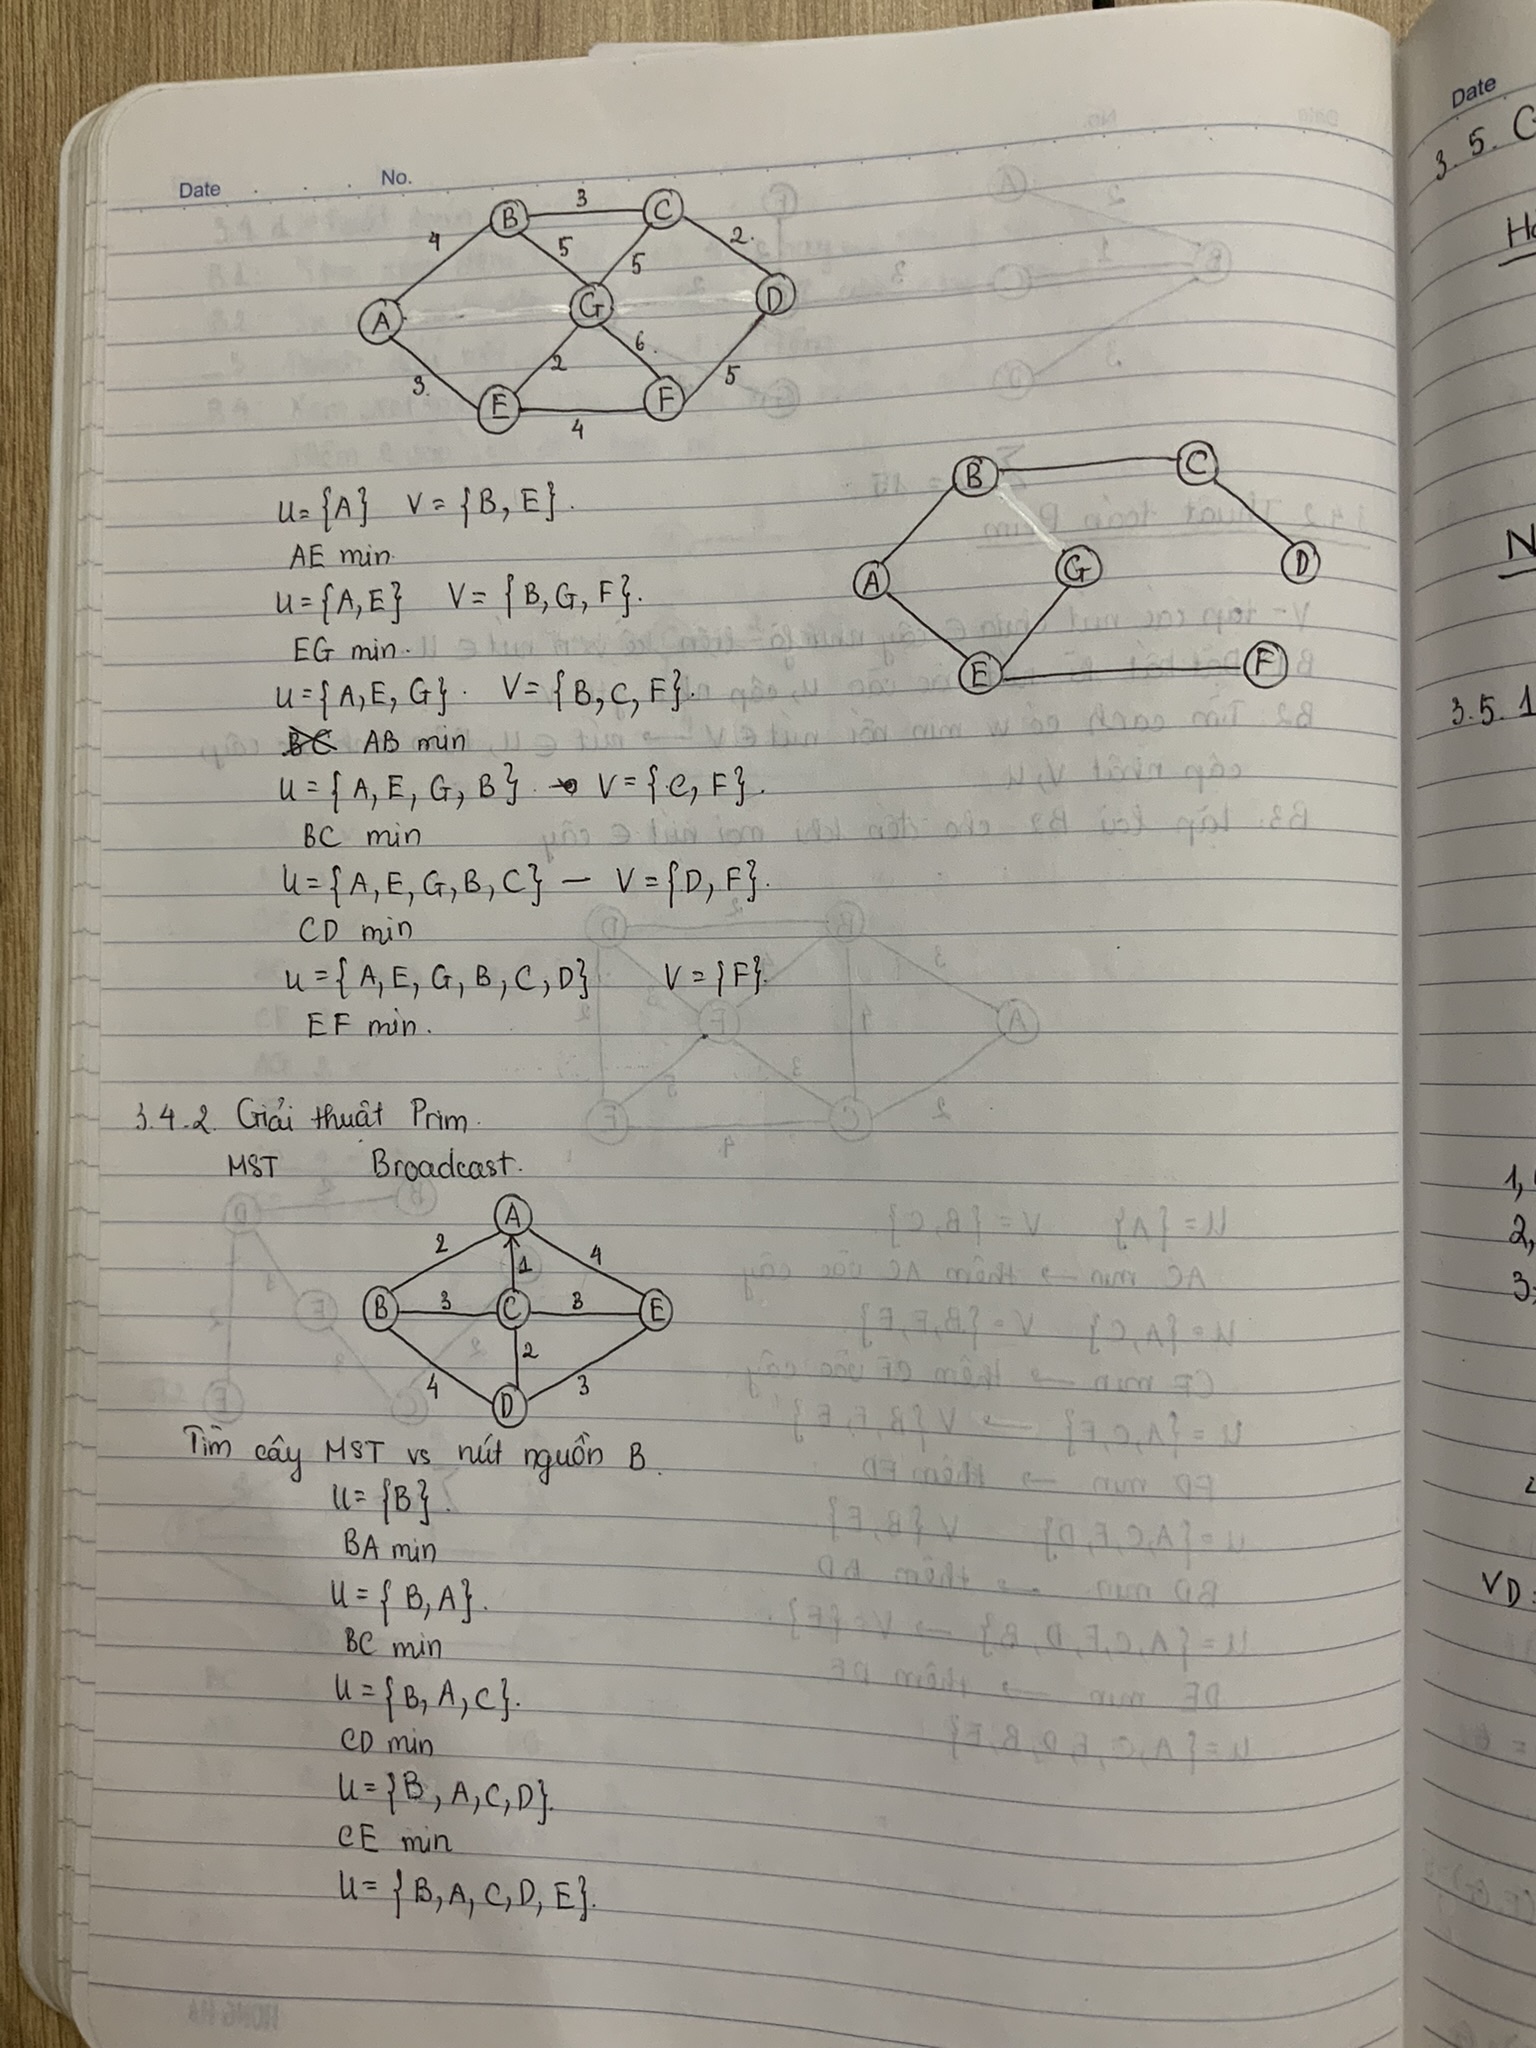 Date No.
B 3 C
4 5 5 2
A G D
3 2 6 5
E 4 F
U={A} V={B, E}.
AE min.
U={A,E} V={B,G,F}.
EG min.
U={A,E,G}. V={B,C,F}.
BC AB min
U={A,E,G,B} → V={C,F}.
BC min
U={A,E,G,B,C} — V={D,F}.
CD min
U={A,E,G,B,C,D} V={F}.
EF min.
B C
A G D
E F
3.4.2. Giải thuật Prim.
MST Broadcast.
A
2 1 4
B 3 C 3 E
4 2 3
D
Tìm cây MST vs nút nguồn B.
U={B}.
BA min
U={B,A}.
BC min
U={B,A,C}.
CD min
U={B,A,C,D}.
CE min
U={B,A,C,D,E}.
Date
3.5. C
N
3.5.1
1,
2,
3,
VD: